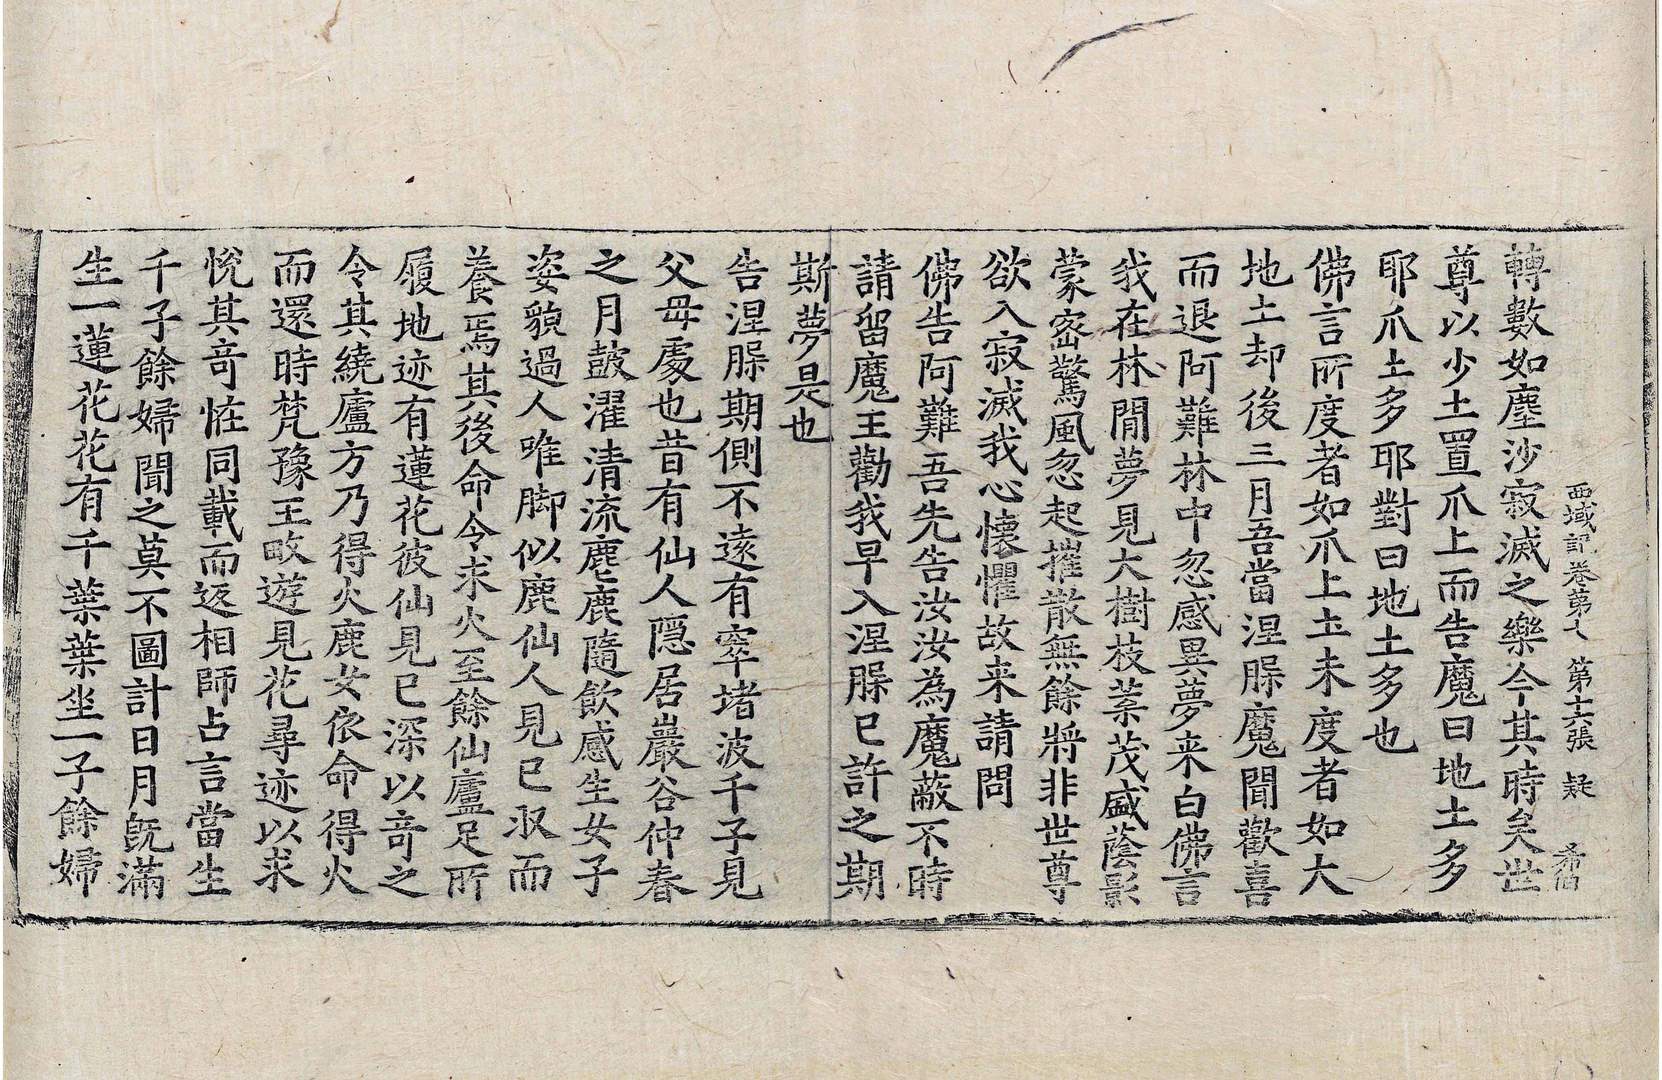 西域記卷第七 第十六張 疑 希伯
轉數如塵沙寂滅之樂今其時矣世
尊以少土置爪上而告魔曰地土多
耶爪土多耶對曰地土多也
佛言所度者如爪上土未度者如大
地土却後三月吾當涅脲魔聞歡喜
而退阿難林中忽感異夢来白佛言
我在林閒夢見大樹枝葉茂盛蔭影
蒙密驚風忽起摧散無餘將非世尊
欲入寂滅我心懐懼故来請問
佛告阿難吾先告汝汝為魔蔽不時
請留魔王勸我早入涅脲已許之期
斯夢是也
告涅脲期側不遠有窣堵波千子見
父母處也昔有仙人隱居巖谷仲春
之月鼓濯清流麀鹿隨飲感生女子
姿貌過人唯脚似鹿仙人見已収而
養焉其後命令求火至餘仙廬足所
履地迹有蓮花彼仙見已深以竒之
令其繞廬方乃得火鹿女依命得火
而還時梵豫王畋遊見花尋迹以求
恱其竒恠同載而返相師占言當生
千子餘婦聞之莫不圖計日月旣滿
生一蓮花花有千葉葉坐一子餘婦